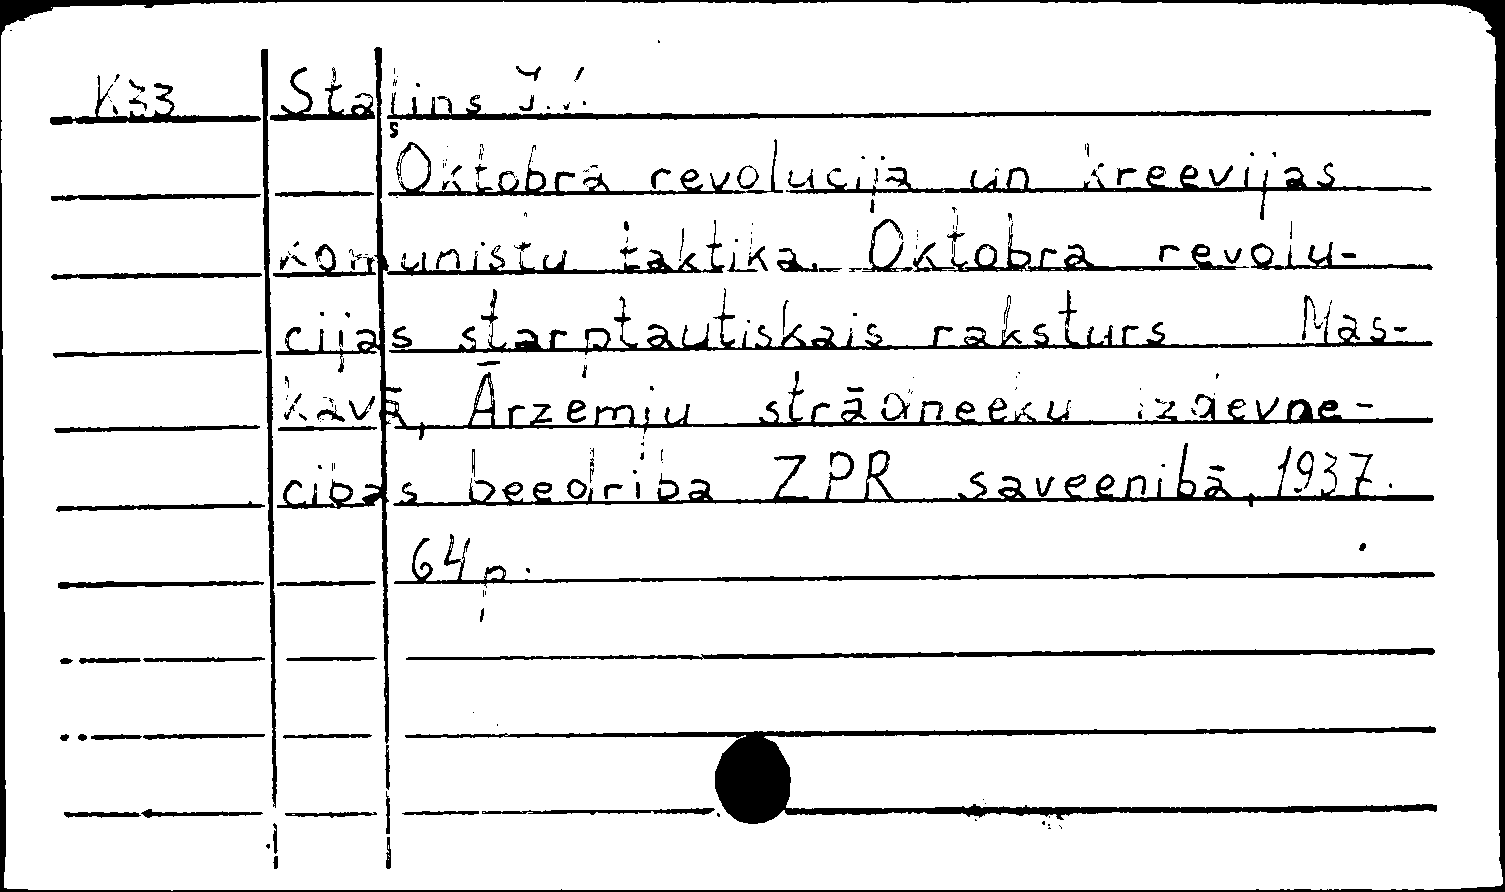 K33 Staļins J.V.
s
Oktobra revolucija un kreevijas
komunistu taktika. Oktobra revolu-
cijas starptautiskais raksturs Mas-
kavā, Ārzemju strādneeku izdevne-
cibas beedriba ZPR saveenibā, 1937.
64 p.